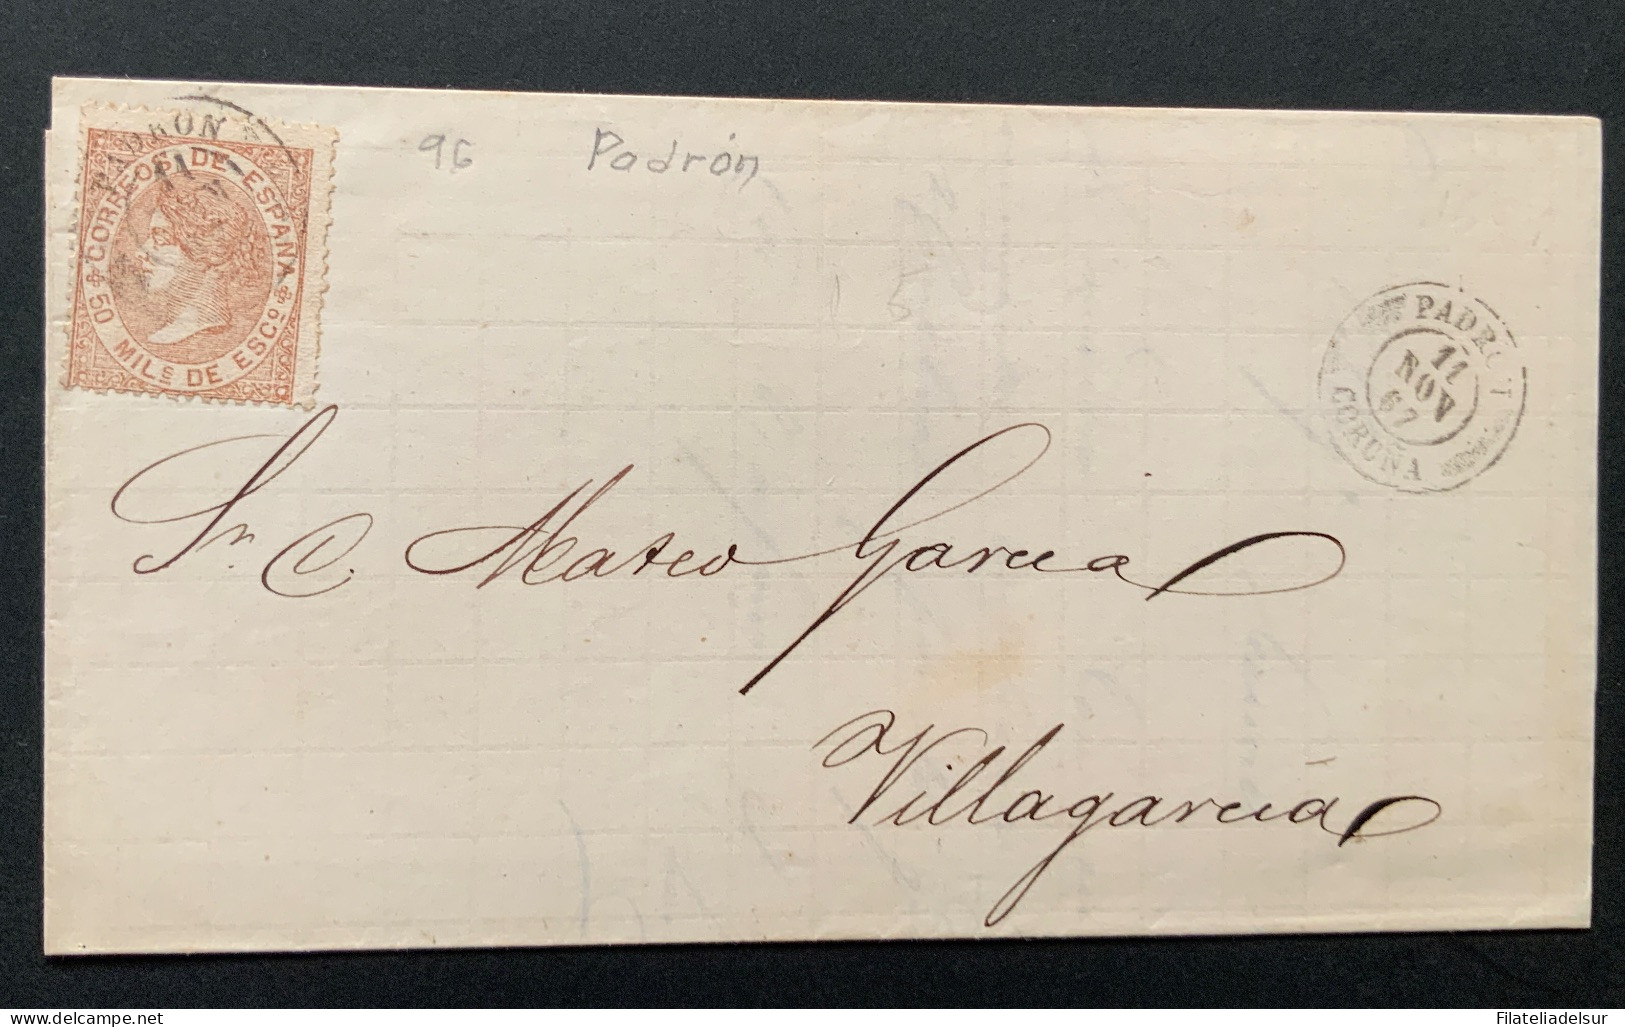 PADRON
CORREOS DE ESPAÑA
50 MILS DE ESCO
96 Padrón
PADRO T
11
NOV
67
CORUÑA
Sr. C. Mateo Garcia
Villagarcía
delcampe.net
Filateliadelsur